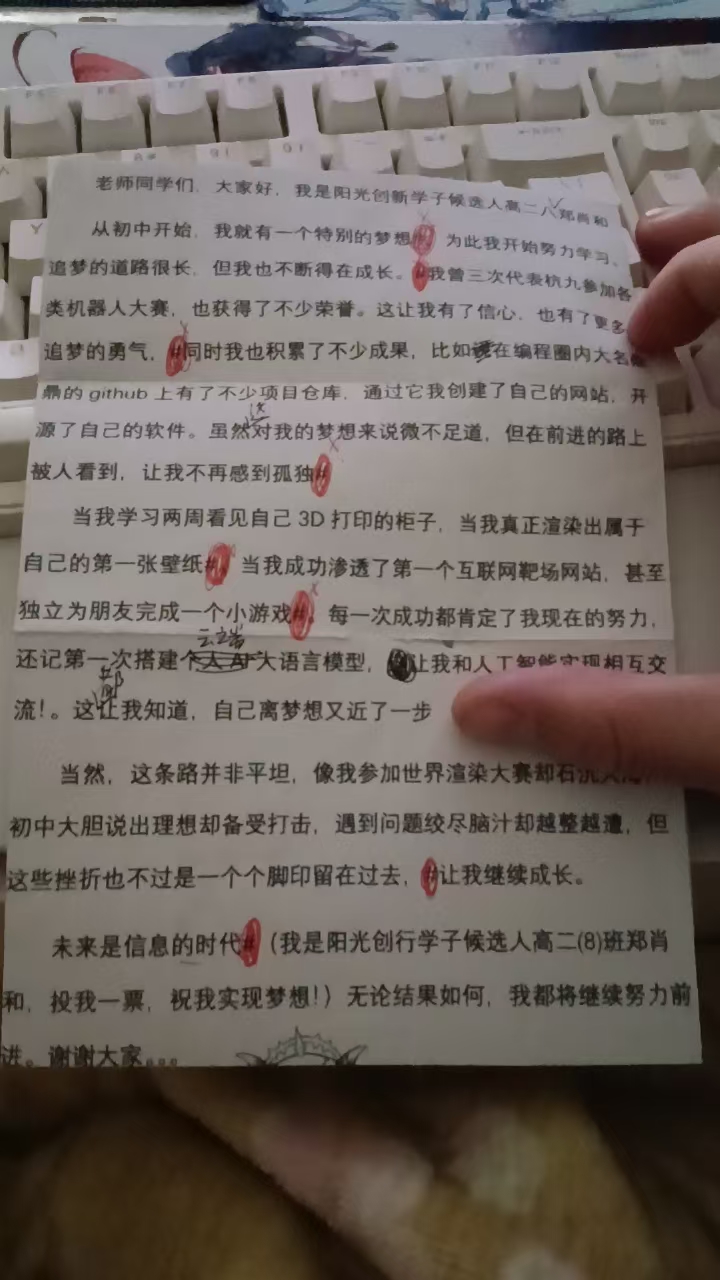 老师同学们，大家好，我是阳光创新学子候选人高二八郑肖和
从初中开始，我就有一个特别的梦想#，为此我开始努力学习。
追梦的道路很长，但我也不断得在成长。#我曾三次代表杭九参加各
类机器人大赛，也获得了不少荣誉。这让我有了信心，也有了更多
追梦的勇气，#同时我也积累了不少成果，比如在编程圈内大名
鼎的github上有了不少项目仓库，通过它我创建了自己的网站，开
源了自己的软件。虽然对我的梦想来说微不足道，但在前进的路上
被人看到，让我不再感到孤独#
当我学习两周看见自己3D打印的柜子，当我真正渲染出属于
自己的第一张壁纸#，当我成功渗透了第一个互联网靶场网站，甚至
独立为朋友完成一个小游戏#。每一次成功都肯定了我现在的努力，
云端
还记第一次搭建个人AI大语言模型，让我和人工智能实现相互交
都
流！。这让我知道，自己离梦想又近了一步
当然，这条路并非平坦，像我参加世界渲染大赛却石沉大海，
初中大胆说出理想却备受打击，遇到问题绞尽脑汁却越整越遭，但
这些挫折也不过是一个个脚印留在过去，#让我继续成长。
未来是信息的时代#（我是阳光创行学子候选人高二(8)班郑肖
和，投我一票，祝我实现梦想！）无论结果如何，我都将继续努力前
进。谢谢大家。。。